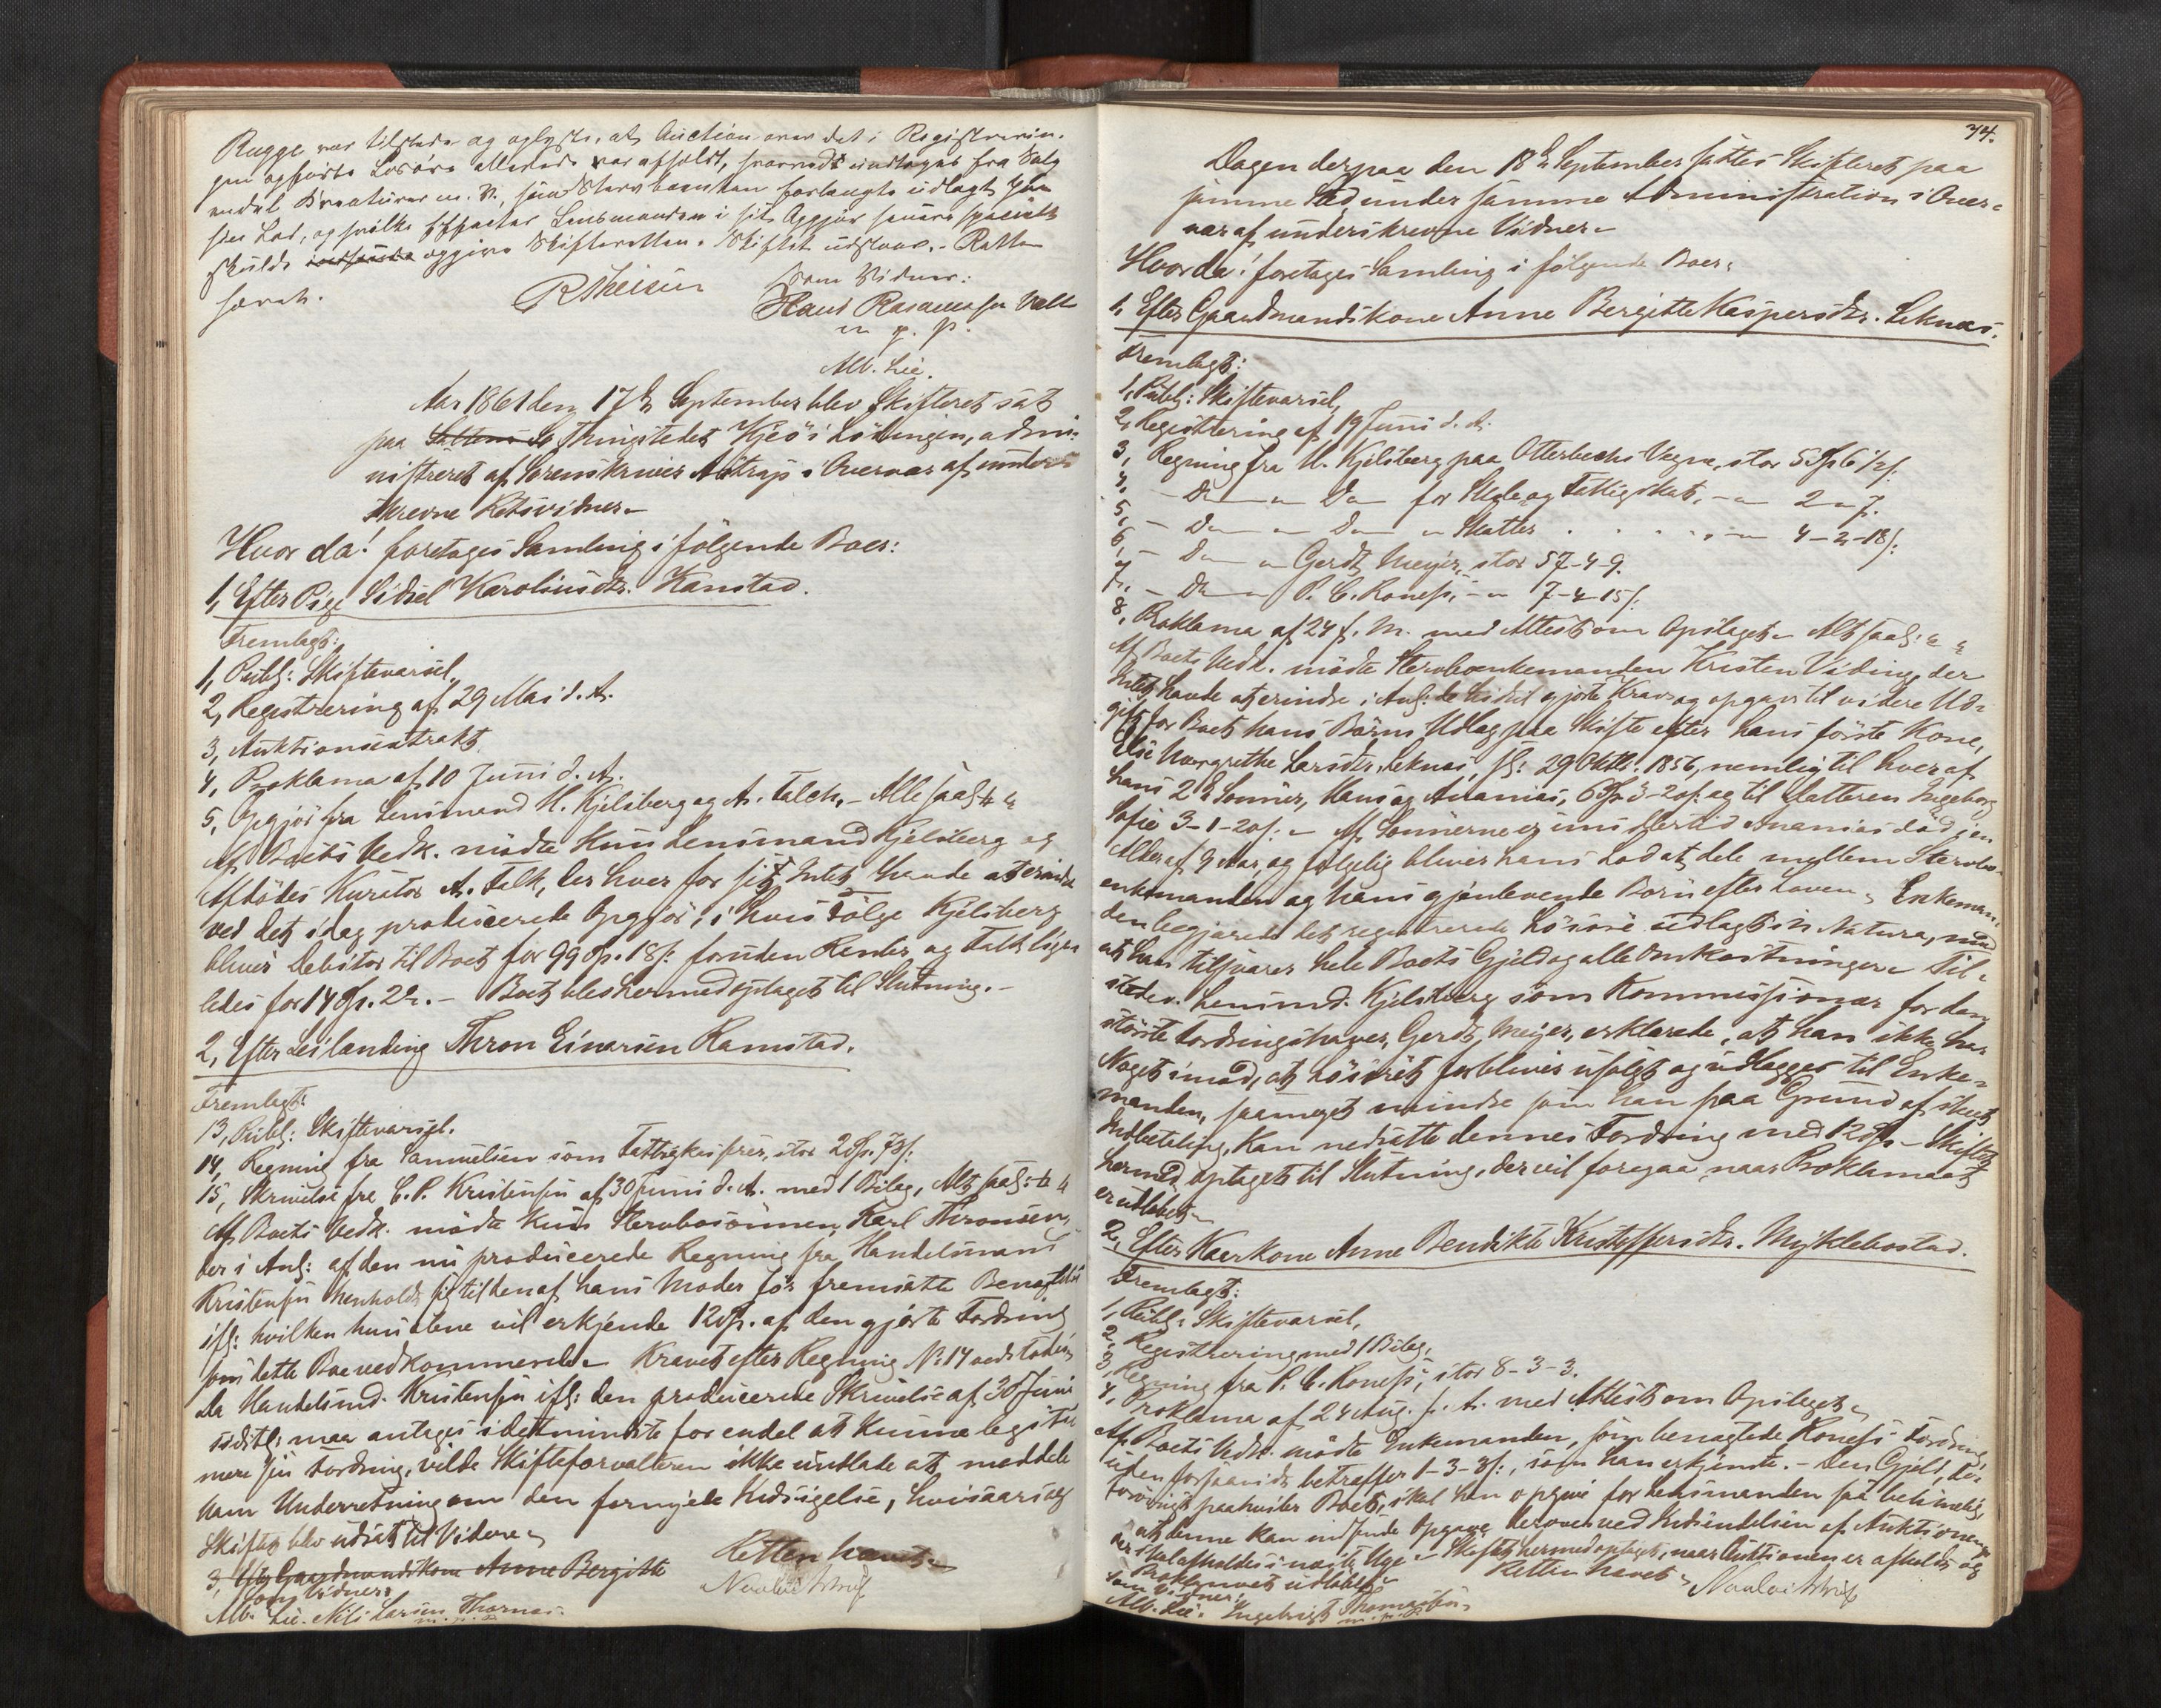 Rugge var tilstede og oplyste, at Auction over det i Registrerin-
gen opførte Løsøre allerede var afholdt, hvorved undtoges fra Salg
endel Kreaturer m. V., som Stervboenken forlangte udlagt paa
sin Lod, og hvilke Effecter Lensmanden i sit Opgjør senere specielt
skulde indsende opgive Skifteretten. Skiftet udsat. - Retten
hævet.
R Theisen Som Vidner:
Hans Rasmussen
m. p. P.
Alb. Lie.
Aar 1861 den 17de September blev Skifteret sat
paa Thingstedet Kjeö i Lödingen, admi-
nistreret af Sorenskriver Astrup i Overvær af under-
skrevne Retsvidner.
Hvor da! foretoges Samling i fölgende Boer:
1, Efter Pige Sidsel Karoliusdtr. Kanstad.
Fremlagt:
1, Publ: Skiftevarsel,
2, Registrering af 29 Mai d. A.
3, Auktionsextrakt,
4, Proklama af 10 Juni d. A.
5, Opgjör fra Lensmand H. Kjelsberg og A. Falch. - Alle saal:
Af Boets Vedk. mödte Kun Lensmand Kjelsberg og
Afdödes Kurator A. Falk, der hver for sig Intet havde at erindre
ved det idag producerede Opgjör, i hvis Fölge Kjelsberg
bliver Debitor til Boet for 99 Sp. 18 s: foruden Renter og Falk lige-
ledes for 14 Sp. 2 . - Boet blev hermed optaget til Slutning. -
2, Efter Leilending Thron Einarsen Ramstad.
Fremlagt:
13, Publ: Skiftevarsel.
14, Regning fra Samuelsen som Fattigkasserer, stor 2 Sp. 78 s:
15, Skrivelse fra C. P. Kristensen af 30 Juni d. A. med 1 Bilag, Alt saal:
Af Boets Vedk. mödte Kun Stervbosönnen Karl Thronsen,
der i Anl: af den nu producerede Regning fra Handelsmand
Kristensen henholdt sig til den af hans Moder för fremsatte Benegtelse
ifl: hvilken hun alene vil erkjende 12 Sp. af den gjorte Fordring
som dette Boe vedkommende. Kravet efter Regning No 14 vedstodes
Da Handelsmd. Kristensen ifl: den producerede Skrivelse af 30 Juni
sidstl: maa antages i det mindste for endel at kunne legiti-
mere sin Fordring, vilde Skifteforvalteren ikke undlade at meddele
ham Underretning om den fornyede Indsigelse, hvisaarsag
Skiftet blev udsat til Videre.
3, Efter Gaardmandskone Anne Bergitte Retten hævet.
Som Vidner: Nicolai Astrup
Alb. Lie. Nils Larsen Thornes
m. p. P.
74.
Dagen derpaa den 18de September sattes Skifteret paa
samme Sted under samme Administration i Over-
vær af underskrevne Vidner.
Hvor da! foretoges Samling i fölgende Boer:
1, Efter Gaardmandskone Anne Bergitte Kaspersdtr. Leknæs.
Fremlagt:
1, Publ: Skiftevarsel,
2, Registrering af 19 Juni d. A.
3, Regning fra H. Kjelsberg paa Otterbechs Vegne, stor 5 Sp 6 1/2 s:
4, - Do - Do for Skole og Fattigskat, - 2 - 7.
5, - Do - Do - Skatter . . . . - 4-2-18 s:
6, - Do - Gerdt Meyer, stor 57-4-9.
7, - Do - P. C. Roness, - 7-4-15 s:
8, Proklama af 24 f. M. med Attest om Opslaget. Alt saal:
Af Boets Vedk. mödte Stervboenkemanden Kristen Viding, der
Intet havde at erindre i Anl: de hidtil gjorte Krav og opgav til videre Ud-
gift for Boet hans Börns Udlæg paa Skifte efter hans förste Kone,
Else Margrethe Larsdtr. Leknæs, sl: 29 Oktbr: 1856, nemlig til hver af
hans 2de Sönner, Hans og Ananias, 6 Sp 3-20 s: og til Datteren Ingeborg
Sofie 3-1-20 s: - Af Sönnerne er imidlertid Ananias död i en
Alder af 9 Aar, og fölgelig bliver hans Lod at dele mellem Stervbo-
enkemanden og hans gjenlevende Börn efter Loven. Enkeman-
den begjærede det registrerede Lösöre udlagt in Natura, mod
at han tilsvarer hele Boets Gjeld og alle Omkostninger. Til-
stedev. Lensmd. Kjelsberg som Kommissionær for den
störste Fordringshaver, Gerdt Meyer, erklærede, at han ikke har
Noget imod, at Lösöret forbliver usolgt og udlægges til Enke-
manden, saameget mindre som han paa Grund af skeet
Indbetaling, Kan nedsætte dennes Fordring med 12 Sp. - Skiftet
hermed optaget til Slutning, der vil foregaa, naar Proklamaet
er udlöbet.
2, Efter Kaarkone Anne Bendikte Kristoffersdtr. Myklebostad.
Fremlagt:
1, Publ: Skiftevarsel,
2, Registrering med 1 Bilag,
3, Regning fra P. C. Roness, stor 8-3-3.
4, Proklama af 24 Aug. d. A. med Attest om Opslaget.
Af Boets Vedk. mödte Enkemanden, som benegtede Roness's Fordring
uden forsaavidt betreffer 1-3-8 s:, som han erkjendte. - Den Gjeld, der
forövrigt paahviler Boet, skal han opgive for Lensmanden saa betimelig,
at denne kan indsende Opgave derover ved Indsendelsen af Auktionen,
der skal afholdes i næste Uge. - Skiftet hermed optaget, naar Auktionen er afholdt og
Proklamaet udlöbet. Retten hævet.
Som Vidner: Nicolai Astrup
Alb. Lie. Ingebrigt Thomassen
m. p. P.